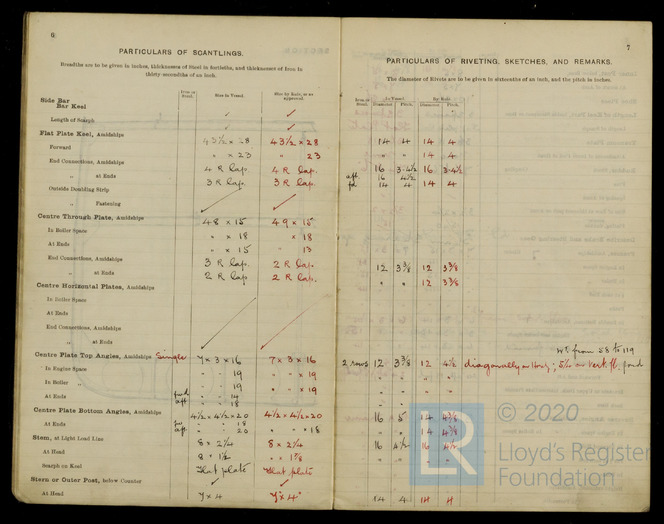 6
PARTICULARS OF SCANTLINGS.
Breadths are to be given in inches, thicknesses of Steel in fortieths, and thicknesses of Iron in
thirty-seconds of an inch.
Iron or Steel. Size in Vessel. Size by Rule, or as approved.
Side Bar
Bar Keel
Length of Scarph
Flat Plate Keel, Amidships 43½ × 28 43½ × 28
Forward " × 23 " 23
End Connections, Amidships 4 R Lap. 4 R Lap.
" at Ends 3 R Lap. 3 R Lap.
Outside Doubling Strip
" Fastening
Centre Through Plate, Amidships 48 × 15 49 × 15
In Boiler Space " × 18 × 18
At Ends " × 15 " 13
End Connections, Amidships 3 R Lap 2 R Lap.
" at Ends 2 R Lap. 2 R Lap.
Centre Horizontal Plates, Amidships
In Boiler Space
At Ends
End Connections, Amidships
" at Ends
Centre Plate Top Angles, Amidships Single 7 × 3 × 16 7 × 3 × 16
In Engine Space " " 19 " " × 19
In Boiler " " " 19 " " × 19
At Ends
Centre Plate Bottom Angles, Amidships 4½ × 4½ × 20 4½ × 4½ × 20
At Ends 18 20 " " × 18
Stem, at Light Load Line 8 × 2¼ 8 × 2¼
At Head
Scarph on Keel Flat plate Flat plate
Stern or Outer Post, below Counter
At Head 7 × 4 7 × 4
7
PARTICULARS OF RIVETING, SKETCHES, AND REMARKS.
The diameter of Rivets are to be given in sixteenths of an inch, and the pitch in inches.
Iron or Steel. As Vessel. By Rule.
Diameter. Pitch. Diameter. Pitch.
14 4 14 4
" " 14 4
16 3·4½ 16 3·4½
aft. 16 4½
for 14 4 14 4
12 3⅜ 12 3⅜
" " 12 3⅜
2 rows 12 3⅜ 12 4½ diagonally
16 5 14 4⅜
" " 14 4⅜
16 4½ 16 4½
14 4 14 4
© 2020
LR Lloyd's Register
Foundation